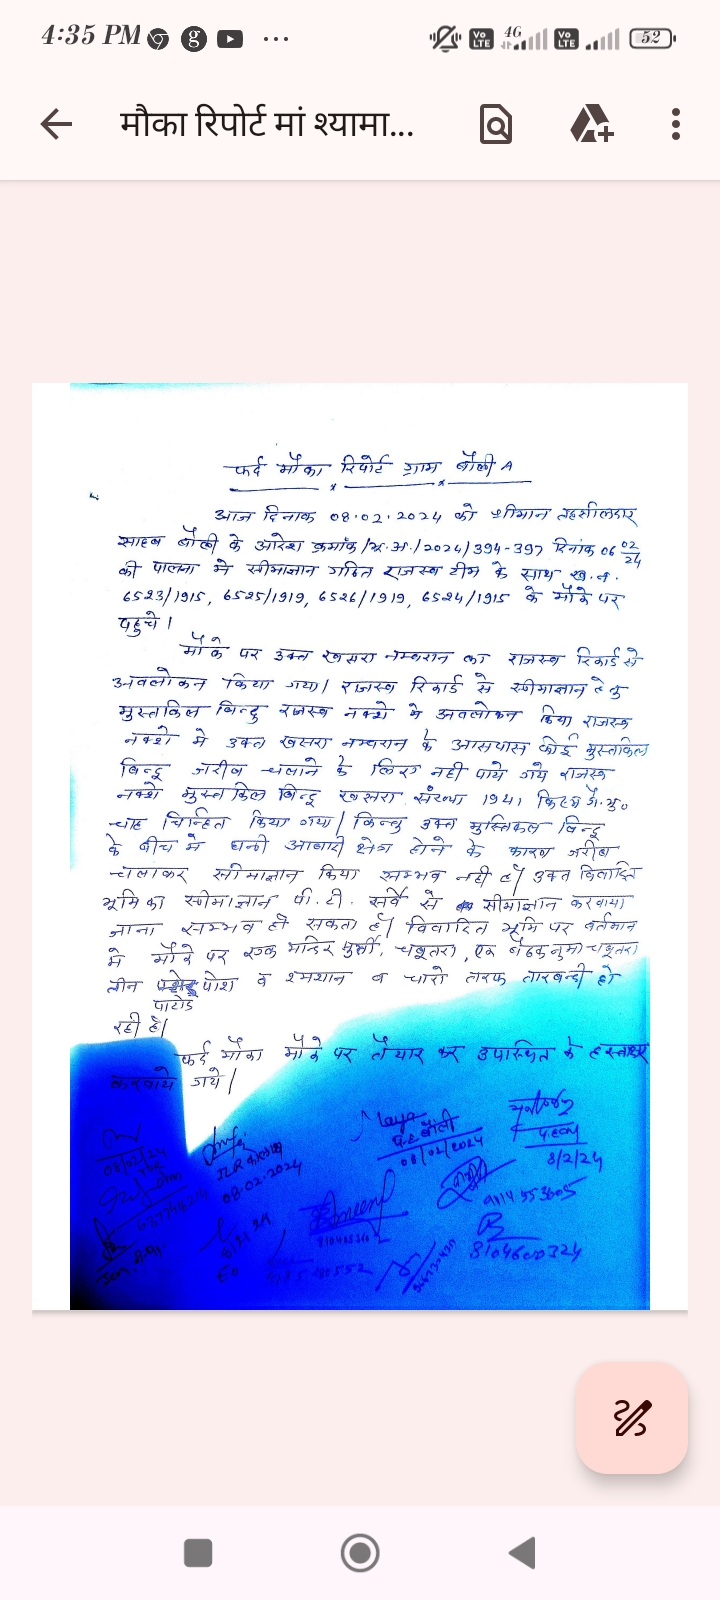 4:35 PM
4G
52
मौका रिपोर्ट मां श्यामा...
फर्द मौका रिपोर्ट ग्राम बौंली A
आज दिनांक 08.02.2024 को श्रीमान तहसीलदार
साहब बौंली के आदेश क्रमांक /भू.अ./2024/394-397 दिनांक 06 02/24
की पालना मे सीमाज्ञान गठित राजस्व टीम के साथ ख.न.
6523/1915, 6525/1919, 6526/1919, 6524/1915 के मौके पर
पहुचे।
मौके पर उक्त खसरा नम्बरान का राजस्व रिकार्ड से
अवलोकन किया गया। राजस्व रिकार्ड से सीमाज्ञान हेतु
मुस्तकिल बिन्दु राजस्व नक्शे मे अवलोकन किया राजस्व
नक्शे मे उक्त खसरा नम्बरान के आसपास कोई मुस्तकिल
बिन्दू जरीब चलाने के लिए नही पाये गये राजस्व
नक्शे मुस्तकिल बिन्दू खसरा संख्या 1941 किस्म गै.मु.
चाह चिन्हित किया गया। किन्तु उक्त मुस्तिकल बिन्दू
के बीच मे घनी आबादी क्षेत्र होने के कारण जरीब
चलाकर सीमाज्ञान किया सम्भव नही है। उक्त विवादित
भूमि का सीमाज्ञान पी.टी. सर्वे से सीमाज्ञान करवाया
जाना सम्भव हो सकता है। विवादित भूमि पर वर्तमान
मे मौके पर एक मन्दिर मुर्ती, चबूतरा, एक बैठक नुमा चबूतरा
तीन पाटोड पोश व श्मशान व चारो तरफ तारबन्दी हो
रही है।
फर्द मौका मौके पर तैयार कर उपास्थित के हस्ताक्षर
करवाये गये।
08/02/24
08.02.2024
प.ह. बौंली
08/02/2024
8/2/24
9114553605
8104600324